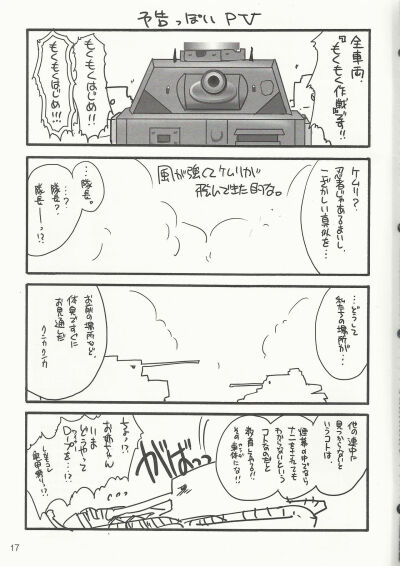 予告っぽいPV
全車両、
『もくもく作戦』です!!
もくもくはじめ!!!
もくもくはじめ!!!
ケムリ?
忍者じゃあるまいし、
こざかしい真似を…
風が強くてケムリが
飛んで出た的な。
…隊長。
…?
隊長?
隊長ーっ!?
…どうして
私たちの場所が…
お前の場所など、
体臭ですぐに
お見通しだ
クンカクンカ
他の連中に
見つからないと
いうコトは、
煙幕の中でなら
ナニをされても
わからないという
コトなのだと
教育してやる!!
その車体にな!!
がばっっ
ちょ!?
お姉ちゃん
いま
どうやって
17